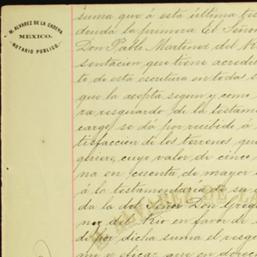 M. ALVAREZ DE LA CADENA
MEXICO.
NOTARIO PUBLICO.
suma que á esta última
denda la primera El Señor
Don Pablo Martinez del R
sentacion que tiene acredi
to de esta escritura en todas s
que la acepta segun y como
ra resguardo de la testamen
cargo, se dá por recibido á
tisfaccion de los terrenos que
quiere, cuyo valor, de cinco
na en cuenta, de mayor
á la testamentaria de su
da la del Señor Don Greg
rio del Rio en favor de
di por dicha suma el resg